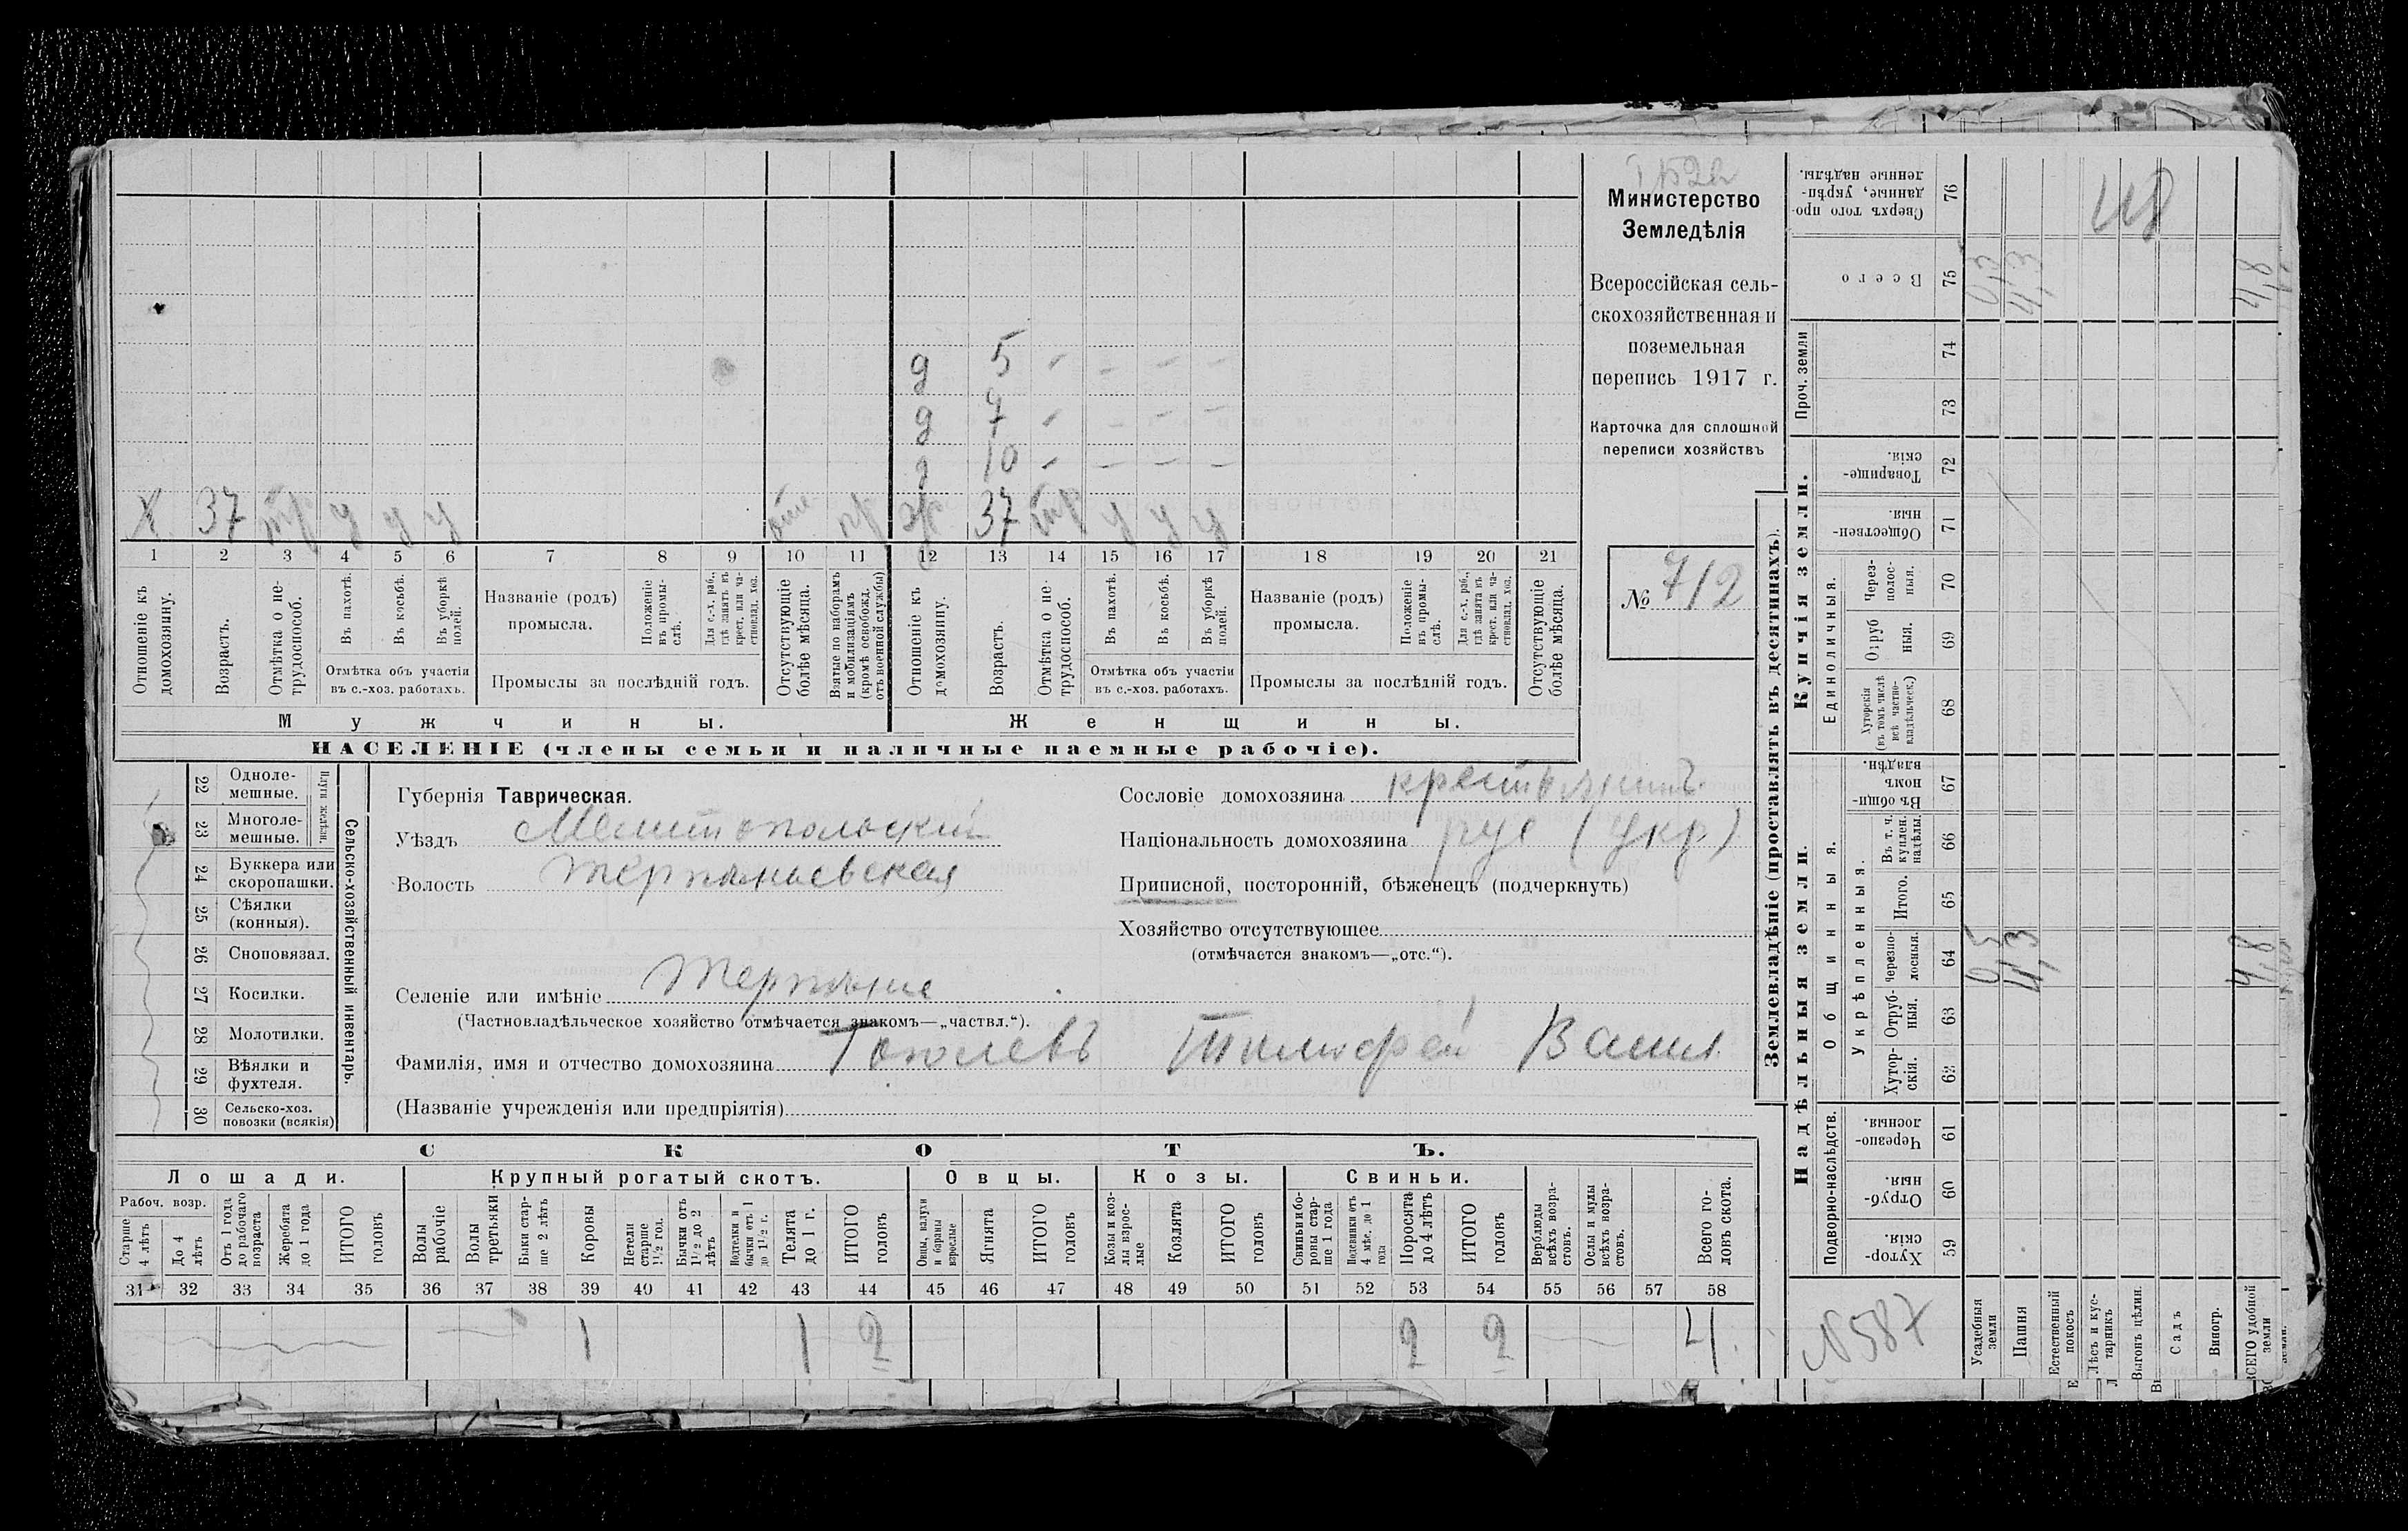 Министерство
Земледѣлія
Всероссійская сель-
скохозяйственная и
поземельная
перепись 1917 г.
Карточка для сплошной
переписи хозяйствъ
№ 712
д 5 - - - -
д 7 - - - -
д 10 - - - -
х 37 тр у у у отс пр ж 37 тр у у у
1 2 3 4 5 6 7 8 9 10 11 12 13 14 15 16 17 18 19 20 21
Отношеніе къ домохозяину.
Возрастъ.
Отмѣтка о не-трудоспособ.
Въ пахотѣ.
Въ косьбѣ.
Въ уборкѣ полей.
Отмѣтка объ участіи
въ с.-хоз. работахъ.
Названіе (родъ)
промысла.
Положеніе въ промы-слѣ.
Для с.-х. раб., гдѣ занятъ въ крест. или ча-стновлад. хоз.
Промыслы за послѣдній годъ.
Отсутствующіе болѣе мѣсяца.
Взятые по наборамъ и мобилизаціямъ (кромѣ освобожд. отъ военной службы)
Отношеніе къ домохозяину.
Возрастъ.
Отмѣтка о не-трудоспособ.
Въ пахотѣ.
Въ косьбѣ.
Въ уборкѣ полей.
Отмѣтка объ участіи
въ с.-хоз. работахъ.
Названіе (родъ)
промысла.
Положеніе въ промы-слѣ.
Для с.-х. раб., гдѣ занята въ крест. или ча-стновлад. хоз.
Промыслы за послѣдній годъ.
Отсутствующіе болѣе мѣсяца.
Мужчины.
Женщины.
НАСЕЛЕНІЕ (члены семьи и наличные наемные рабочіе).
Сельско-хозяйственный инвентарь.
Плуги желѣзн.
22 Одноле-мешные.
23 Многоле-мешные.
24 Буккера или скоропашки.
25 Сѣялки (конныя).
26 Сноповязал.
27 Косилки.
28 Молотилки.
29 Вѣялки и фухтеля.
30 Сельско-хоз. повозки (всякія)
Губернія Таврическая.
Уѣздъ Мелитопольскій
Волость Терпеньевская
Селеніе или имѣніе Терпѣніе
(Частновладѣльческое хозяйство отмѣчается знакомъ—„частвл.“).
Фамилія, имя и отчество домохозяина Тополевъ Тимофей Васил.
(Названіе учрежденія или предпріятія)
Сословіе домохозяина крестьянинъ
Національность домохозяина рус (укр)
Приписной, посторонній, бѣженецъ (подчеркнуть)
Хозяйство отсутствующее
(отмѣчается знакомъ—„отс.“).
СКОТЪ.
Лошади. Крупный рогатый скотъ. Овцы. Козы. Свиньи.
Рабоч. возр.
Старше 4 лѣтъ
До 4 лѣтъ
Отъ 1 года до рабочаго возраста
Жеребята до 1 года
ИТОГО головъ
Волы рабочіе
Волы третьяки
Быки стар-ше 2 лѣтъ
Коровы
Нетели старше 1 1/2 гол.
Бычки отъ 1 1/2 до 2 лѣтъ
Подтелки и бычки отъ 1 до 1 1/2 г.
Телята до 1 г.
ИТОГО головъ
Овцы, валухи и бараны взрослые
Ягнята
ИТОГО головъ
Козы и коз-лы взрос-лые
Козлята
ИТОГО головъ
Свиньи и бо-ровы стар-ше 1 года
Подсвинки отъ 4 мѣс. до 1 года
Поросята до 4 лѣтъ
ИТОГО головъ
Верблюды всѣхъ возра-стовъ.
Ослы и мулы всѣхъ возра-стовъ.
Всего го-ловъ скота.
31 32 33 34 35 36 37 38 39 40 41 42 43 44 45 46 47 48 49 50 51 52 53 54 55 56 57 58
1 1 2 2 2 4
Землевладѣніе (проставлять въ десятинахъ).
Надѣльныя земли.
Купчія земли.
Проч. земли
Подворно-наслѣдств.
Общинныя.
Укрѣпленныя.
Единоличныя.
Сверхъ того про-данные, укрѣп-ленные надѣлы. 76
Всего 75
74
73
Товарище-скія. 72
Обществен-ныя. 71
Через-полос-ныя. 70
Отруб ныя. 69
Хуторскія (въ томъ числѣ всѣ частно-владѣльческ.) 68
Въ общи-номъ владѣн. 67
Въ т. ч. куплен. надѣлы. 66
Итого. 65
Черезпо-лосныя. 64
Отруб-ныя. 63
Хутор-скія. 62
Черезпо-лосныя. 61
Отруб-ныя. 60
Хутор-скія. 59
0,5 4,3 4,8
0,5 4,3 4,8
N 587
Усадебныя земли
Пашня
Естественный покосъ
Лѣсъ и кус-тарникъ
Выгонъ цѣлин.
Садъ
Виногр.
ВСЕГО удобной земли